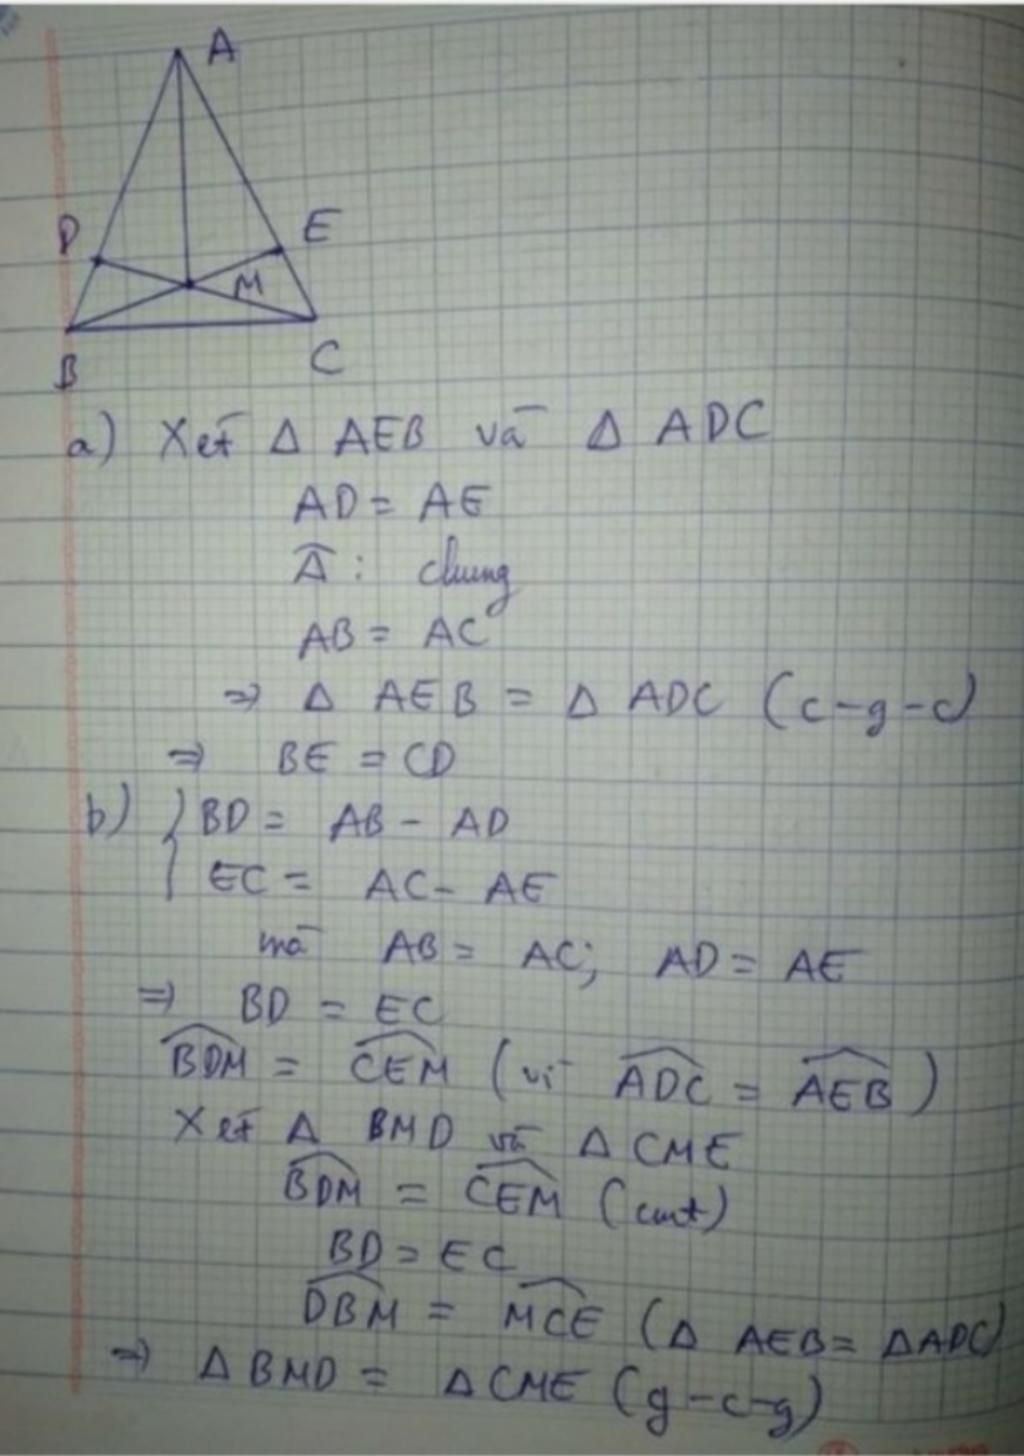 A
D
E
M
B
C
a) Xét Δ AEB và Δ ADC
AD = AE
Â : chung
AB = AC
⇒ Δ AEB = Δ ADC (c-g-c)
⇒ BE = CD
b) { BD = AB - AD
EC = AC - AE
mà AB = AC; AD = AE
⇒ BD = EC
\widehat{BDM} = \widehat{CEM} (vì \widehat{ADC} = \widehat{AEB})
Xét Δ BMD và Δ CME
\widehat{BDM} = \widehat{CEM} (cmt)
BD = EC
\widehat{DBM} = \widehat{MCE} (Δ AEB = ΔADC)
⇒ Δ BMD = Δ CME (g-c-g)